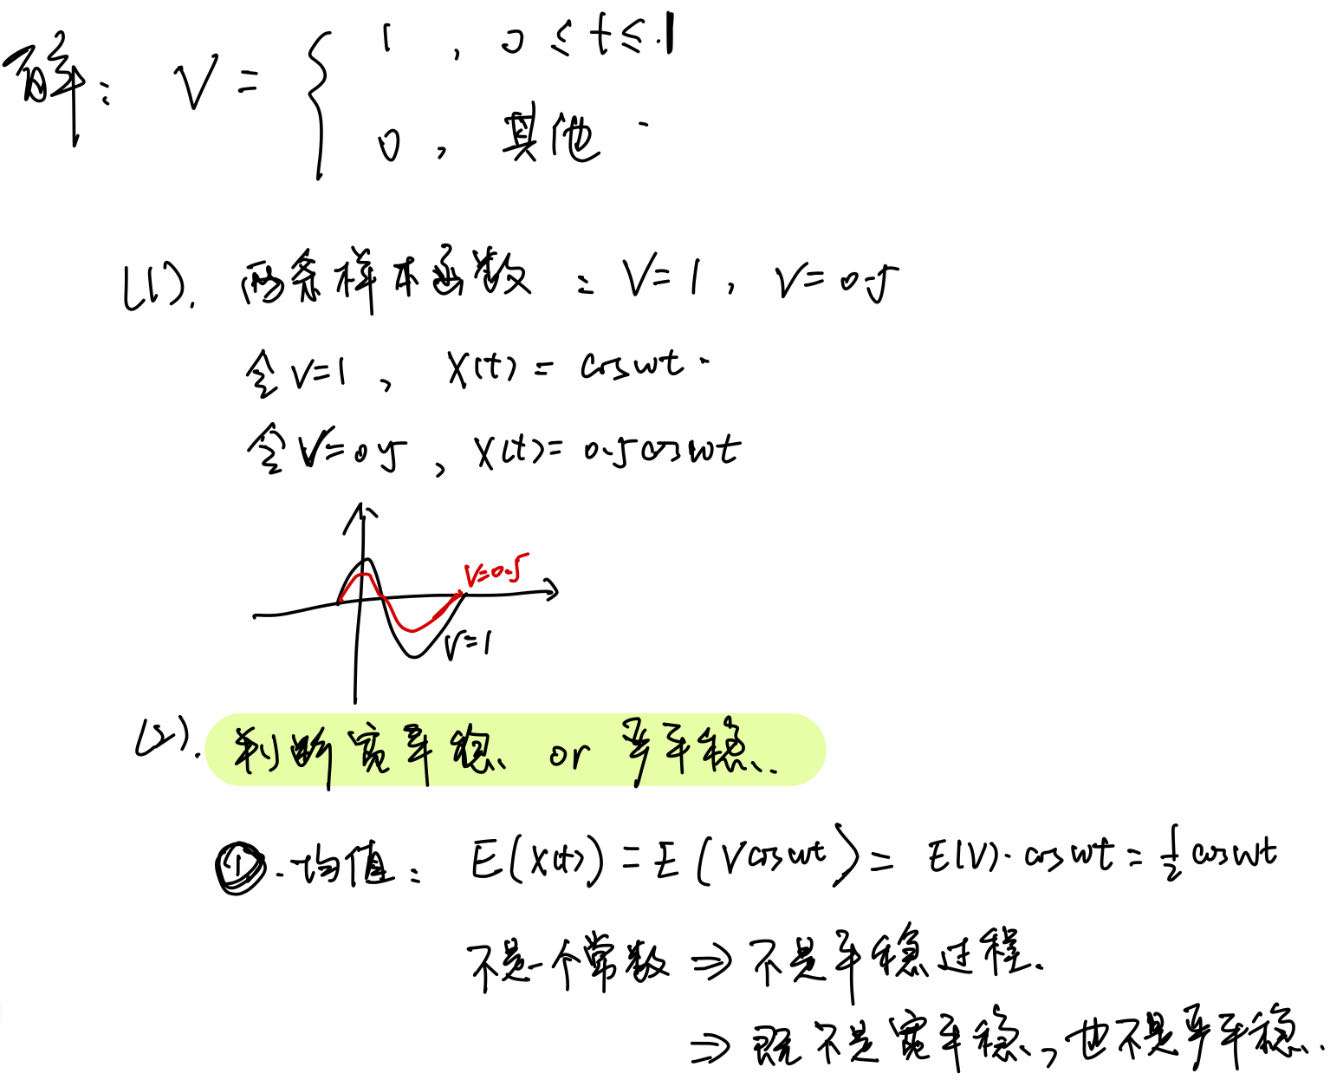 解： V = { 1 , 0 ≤ t ≤ 1
0 , 其他
(1). 两条样本函数 : V=1 , V=0.5
令V=1 , X(t) = coswt .
令V=0.5 , X(t)= 0.5coswt
V=0.5
V=1
(2). 判断宽平稳 or 严平稳.
①.均值： E(X(t)) = E(Vcoswt) = E(V)·coswt = 1/2 coswt
不是一个常数 ⇒ 不是平稳过程.
⇒ 既不是宽平稳, 也不是严平稳.